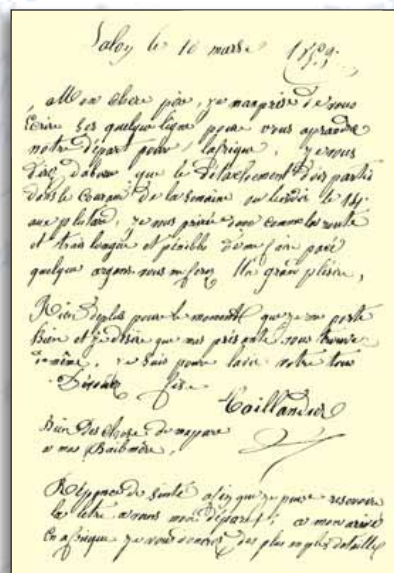 le 10 marse
Mon chere père, je manprése de vous
Écrire ses quelque ligne pour vous aprandre
notre départ pour lafrique, je vous
dirai dabore que le Détachement dois partir
dans le courans de la semaine ou lundi le 14
aux plutard, je vous prirée donc comme la route
et trais longue et pénible de me faire pasé
quelque argens vous me ferez un grans plésire,
Rien déplus pour le moment que je me porte
bien et je désire que mes présante vous trouve
de même, je suis pour lavie votre tous
Dévouée fise
Taillandier
Bien Des chose de mapare
a ma
Réponce de suite afin que je puise resevoire
la letre avans mon départ; a mon arivé
En afrique je vous donerez des plus emples détailles